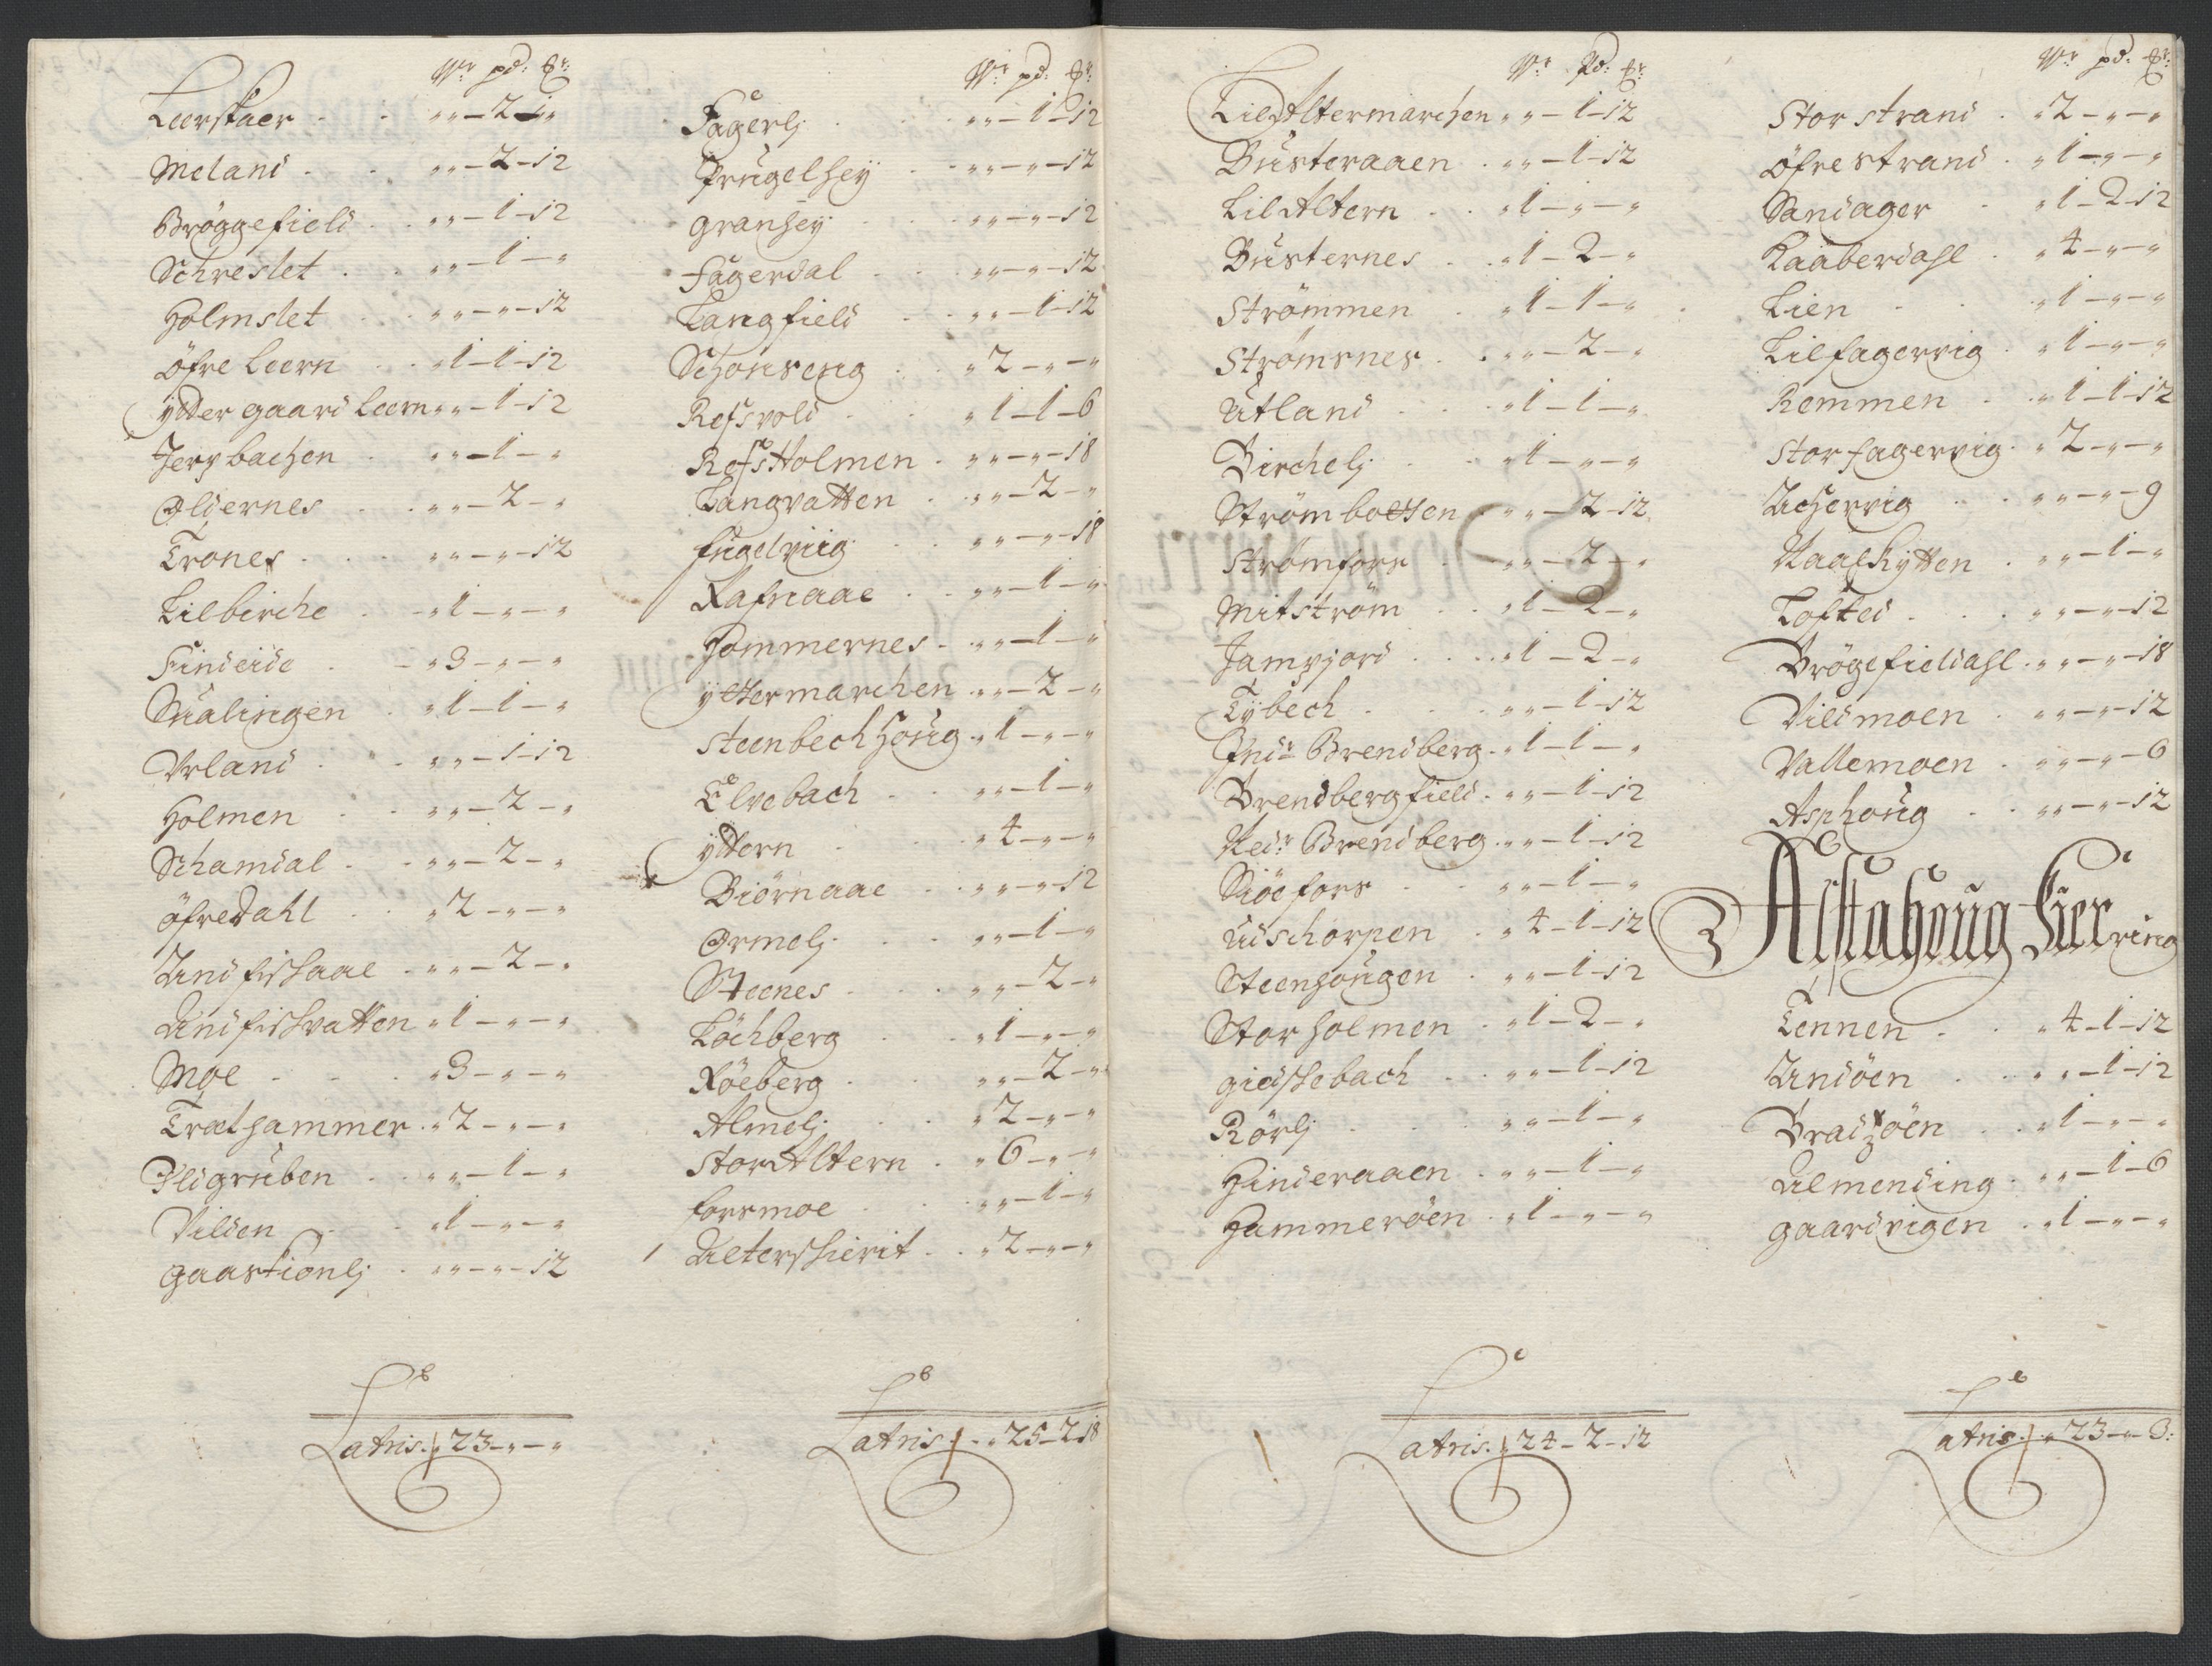 Wr: pd: Er:
Leerskaer . . „ „ – 2 – „
Meland . . „ „ – 2 – 12
Bröggefield . . „ „ – 1 – 12
Schreslet . . „ „ – 1 – „
Holmslet . . „ „ – „ – 12
öfre Leern . . „ 1 – 1 – 12
ytter gaard Leern „ „ – 1 – 12
Jerpbachen . „ „ – 1 – „
Oldernes . . „ „ – 2 – „
Trones . . . „ „ – „ – 12
Lilbirche . – „ 1 – „ – „
Findeide . – „ 3 – „ – „
Sualingen . „ 1 – 1 – „
Urland . . „ „ – 1 – 12
Holmen . . „ „ – 2 – „
Schamdal . . „ „ – 2 – „
öfredahl . . „ 2 – „ – „
Andfishaae . „ „ – 2 – „
Andfishvatten „ 1 – „ – „
Moe . . . „ 3 – „ – „
Træthammer . „ 2 – „ – „
Ildgruben . . „ „ – 1 – „
Vilden . . „ 1 – „ – „
gaastionlj . „ „ – „ – 12
Latris . „ 23 – „ – „
Wr: pd: Er:
Fagerlj . . „ „ – 1 – 12
Prugelhey . – „ „ – „ – 12
granhey . . „ „ – „ – 12
fagerdal . . „ „ – „ – 12
Langfield . . „ „ – 1 – 12
Schonseng . . „ 2 – „ – „
Refsvold . . „ 1 – 1 – 6
RefsHolmen . „ „ – „ – 18
Langvatten . „ „ – 2 – „
fugelviig . . „ „ – „ – 18
Rafnaae . . „ „ – 1 – „
Hommernes . „ „ – 1 – „
yttermarchen „ „ – 2 – „
steenbechhoug . „ 1 – „ – „
Elvebach . . „ „ – 1 – „
yttern . . „ 4 – „ – „
Biörnaae . . „ „ – „ – 12
Ormelj . . „ „ – 1 – „
Steenes . . „ „ – 2 – „
Löchberg . . „ 1 – „ – „
Röeberg . . „ „ – 2 – „
Almelj . . „ 2 – „ – „
StorAltern . „ 6 – „ – „
forsmoe . . „ „ – 1 – „
Alterschierit . . „ 2 – „ – „
Latris . . „ 25 – 2 – 18
Wr: Pd: Er:
LilAltermarchen „ „ – 1 – 12
Busteraaen . „ „ – 1 – 12
LilAltern . . „ 1 – „ – „
Busternes . . „ 1 – 2 – „
Strömmen . „ 1 – 1 – „
Strömsnes . . „ „ – 2 – „
Utland . . „ 1 – 1 – „
Birchelj . . „ 1 – „ – „
Strömbotten . „ „ – 2 – 12
Strömfors . „ „ – 2 – „
Mitström . . „ 1 – 2 – „
Jamvjord . . „ 1 – 2 – „
Tybech . . „ „ – 1 – 12
Indr Brendberg . „ 1 – 1 – „
Brendbergfield . „ „ – 1 – 12
Nedr Brendberg . „ „ – 1 – 12
Siöefors . . „ „ – 1 – „
Udschorpen . „ 4 – 1 – 12
Steenhougen . „ „ – 1 – 12
Storholmen . „ 1 – 2 – „
gieisshebach . . „ „ – 1 – 12
Rörlj . . . „ „ – 1 – „
Hinderaaen . „ „ – 1 – „
Hammeröen . „ 1 – „ – „
Latris . „ 24 – 2 – 12
Wr: pd: Er:
Storstrand . „ 2 – „ – „
öfrestrand . „ 1 – „ – „
Sandager . „ 1 – 2 – 12
Kaaberdahl . „ 4 – „ – „
Lien . . „ 1 – „ – „
Lilfagervig . „ 1 – „ – „
Remmen . . „ 1 – 1 – 12
Storfagervig . „ 2 – „ – „
Achervig . . „ „ – „ – 9
Naalhytten . „ „ – 1 – „
Tofted . . . „ „ – „ – 12
Brögefieldahl . „ „ – „ – 18
Vildmoen . „ „ – „ – 12
Vallemoen . „ „ – „ – 6
Asphoug . . „ „ – „ – 12
3 Alstahoug Fierring
Tennen . . „ 4 – 1 – 12
Andöen . . „ „ – 1 – 12
Bradzöen . . „ 1 – „ – „
Almending . „ „ – 1 – 6
gaardvigen . „ 1 – „ – „
Latris . „ 23 – „ – 3: